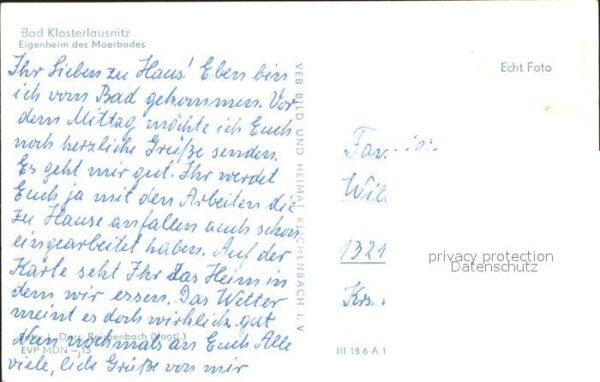 Bad Klosterlausnitz
Eigenheim des Moorbades
Ihr Lieben zu Haus! Eben bin
ich vom Bad gekommen. Vor
dem Mittag möchte ich Euch
noch herzliche Grüße senden.
Es geht mir gut. Ihr werdet
Euch ja mit den Arbeiten die
zu Hause anfallen auch schon
eingearbeitet haben. Auf der
Karte seht Ihr das Heim in
dem wir essen. Das Wetter
meint es doch wirklich gut
Nun nochmals an Euch Alle
viele, liebe Grüße von mir
Reichenbach (Vogtl.)
EVP MDN –,15
VEB BILD UND HEIMAT REICHENBACH I. V.
Echt Foto
Fam
Wil
1321
Krs.
privacy protection
Datenschutz
III 18 6 A 1